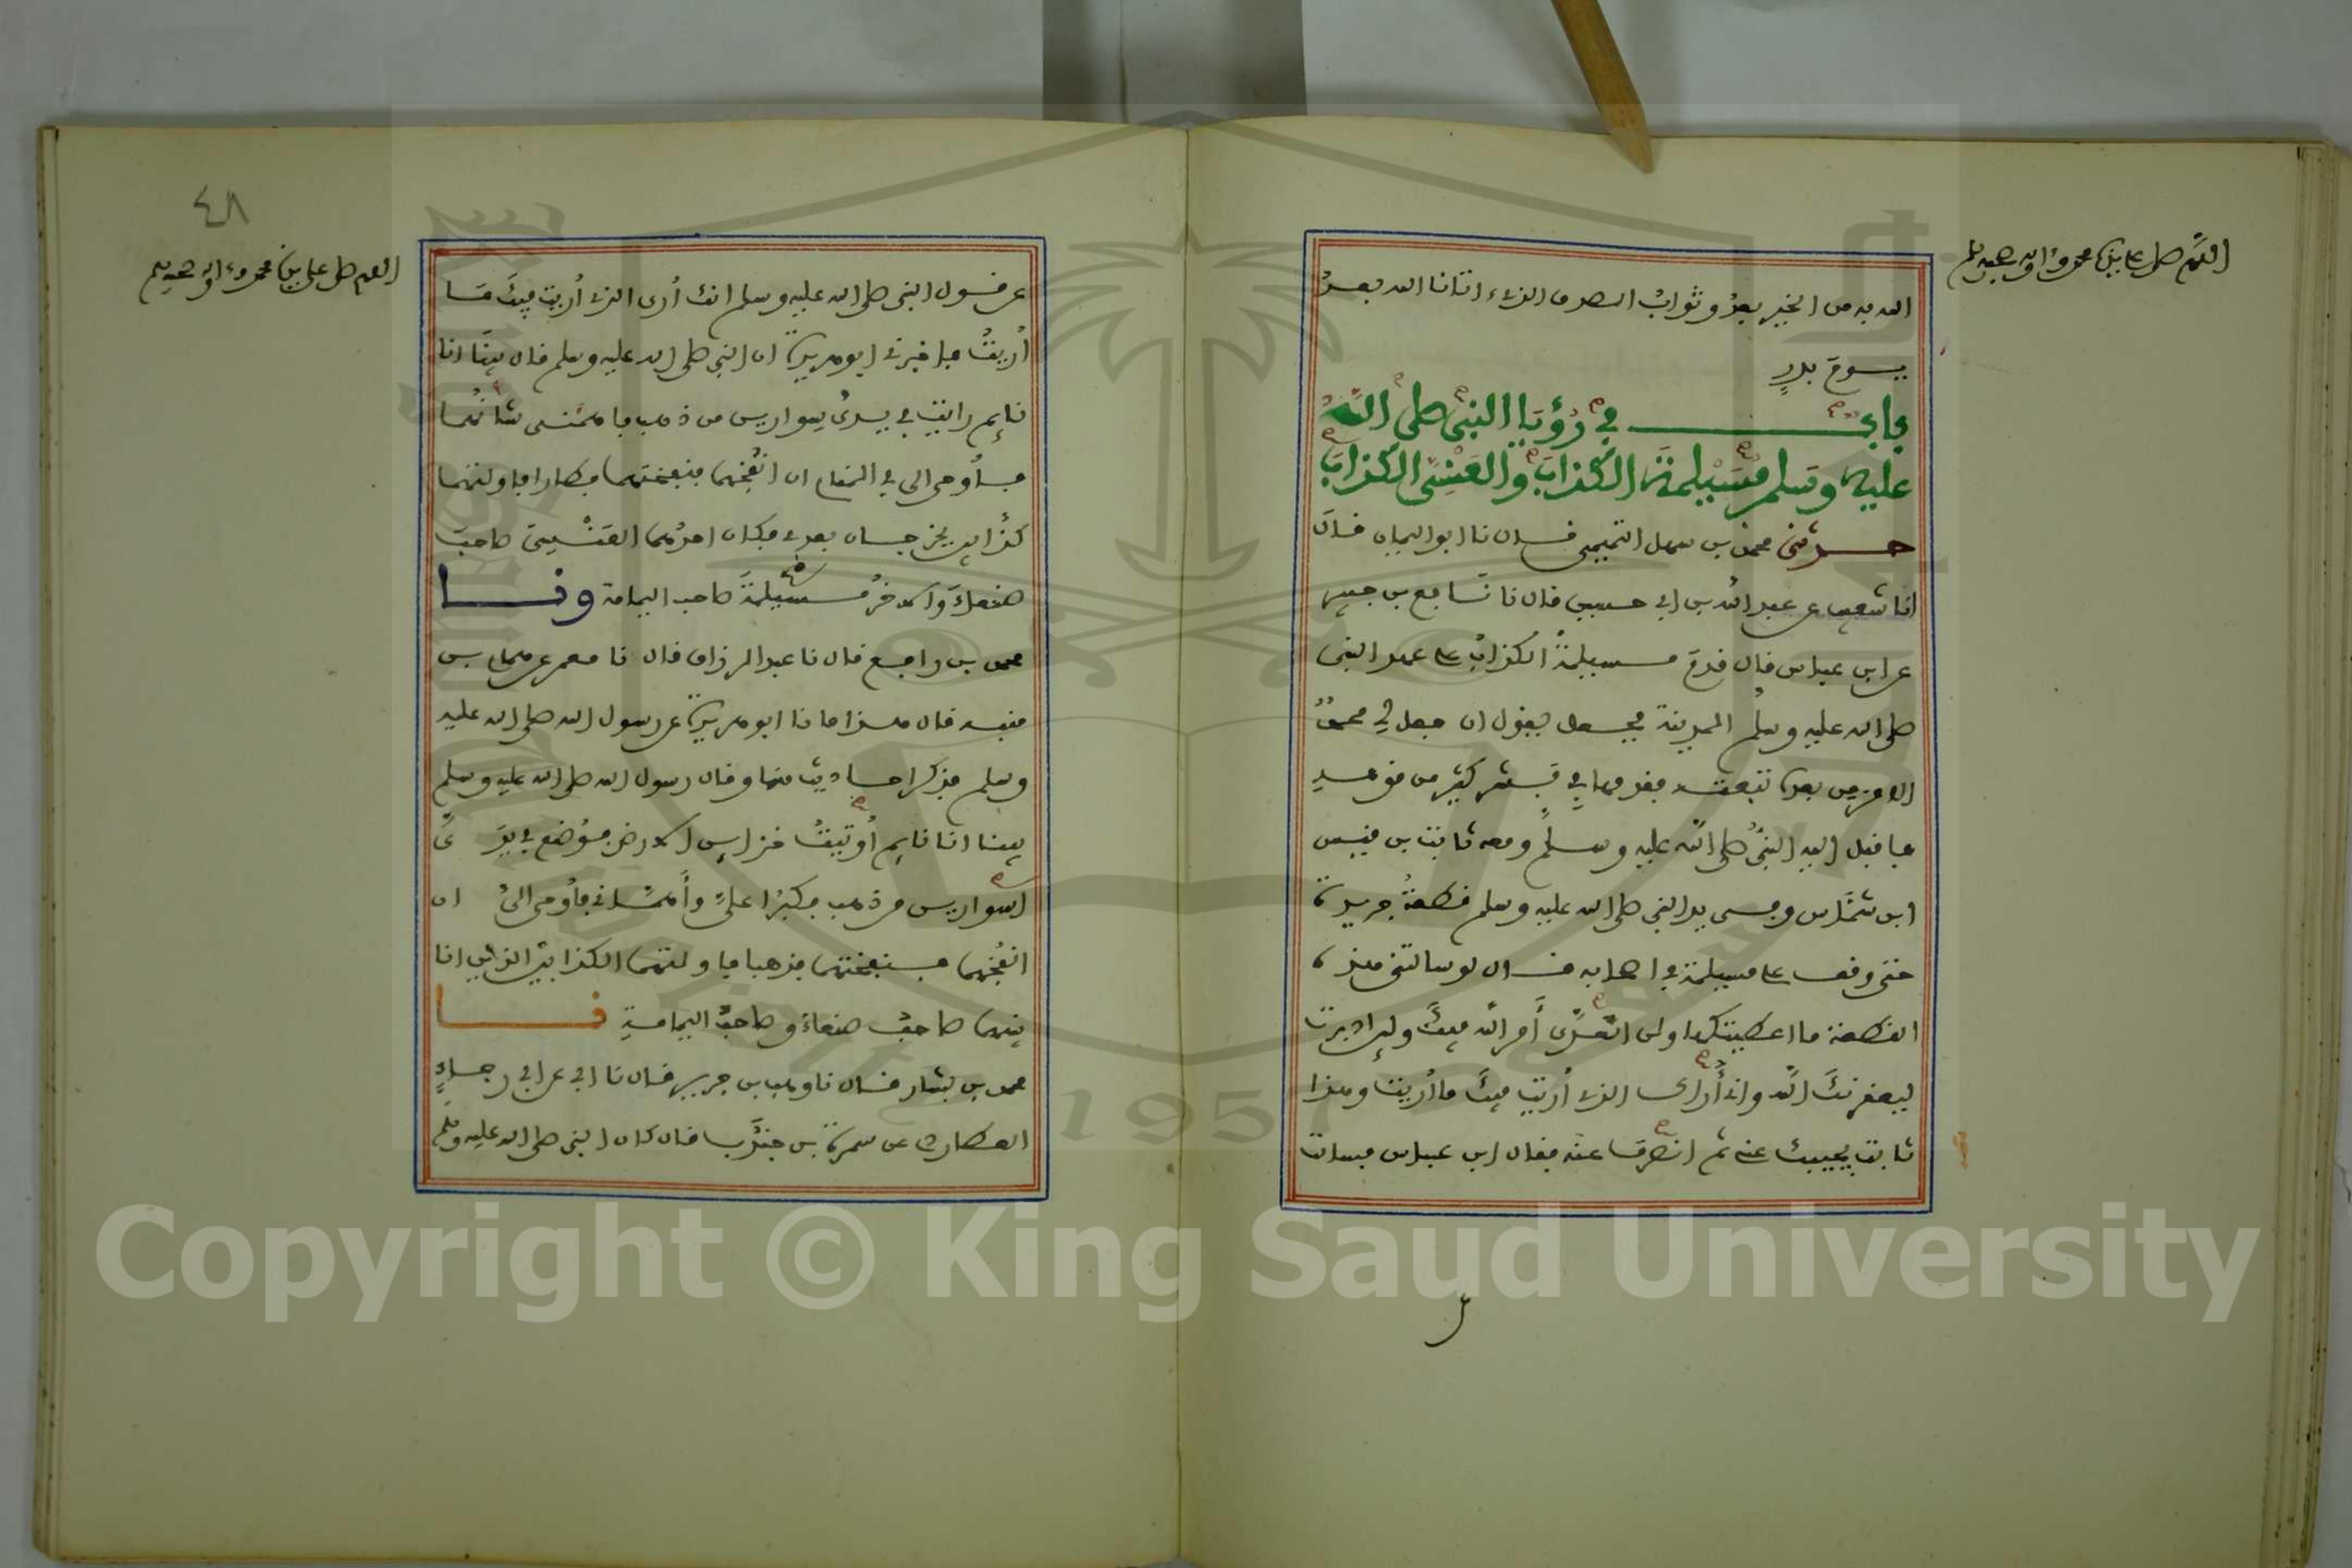 اللهم صل على نبينا محمد وءاله وصحبه وسلم
الله به من الخير بعد وثواب الصدق الذي اتانا الله بعد
يوم بدر
باب في رؤيا النبي صلى الله
عليه وسلم مسيلمة الكذاب والعنسي الكذاب
حدثني محمد بن سهل التميمي قال نا ابو اليمان قال
انا شعيب عن عبد الله بن ابي حسين قال نا نافع بن جبير
عن ابن عباس قال قدم مسيلمة الكذاب على عهد النبي
صلى الله عليه وسلم المدينة فجعل يقول ان جعل لي محمد
الامر من بعده تبعته فقدمها في بشر كثير من قومه
فاقبل اليه النبي صلى الله عليه وسلم ومعه ثابت بن قيس
ابن شماس وفي يد النبي صلى الله عليه وسلم قطعة جريدة
حتى وقف على مسيلمة في اصحابه قال لو سالتني هذه
القطعة ما اعطيتكها ولن اتعدى أمر الله فيك ولئن ادبرت
ليعقرنك الله واني أراك الذي أريت فيك ما أريت وهذا
ثابت يجيبك عني ثم انصرف عنه فقال ابن عباس فسالت
٤٨
اللهم صل على نبينا محمد وءاله وصحبه وسلم
عن قول النبي صلى الله عليه وسلم انك أرى الذي أريت فيك ما
أريت فاخبرني ابو هريرة ان النبي صلى الله عليه وسلم قال بينا انا
نايم رايت في يدي سوارين من ذهب فاهمني شأنهما
فأوحي الي في المنام ان انفخهما فنفختهما فطارا فاولتهما
كذابين يخرجان بعدي فكان احدهما العنسي صاحب
صنعاء والاخر مسيلمة صاحب اليمامة ونا
محمد بن رافع قال نا عبد الرزاق قال نا معمر عن همام بن
منبه قال هذا ما نا ابو هريرة عن رسول الله صلى الله عليه
وسلم فذكر احاديث منها وقال رسول الله صلى الله عليه وسلم
بينا انا نايم أوتيت خزاين الارض فوضع في يدي
اسوارين من ذهب فكبرا علي وأهماني فأوحي الي ان
انفخهما فنفختهما فذهبا فاولتهما الكذابين الذين انا
بينهما صاحب صنعاء وصاحب اليمامة نا
محمد بن بشار قال نا وهب بن جرير قال نا ابي عن ابي رجاء
العطاردي عن سمرة بن جندب قال كان النبي صلى الله عليه وسلم
1957
Copyright © King Saud University